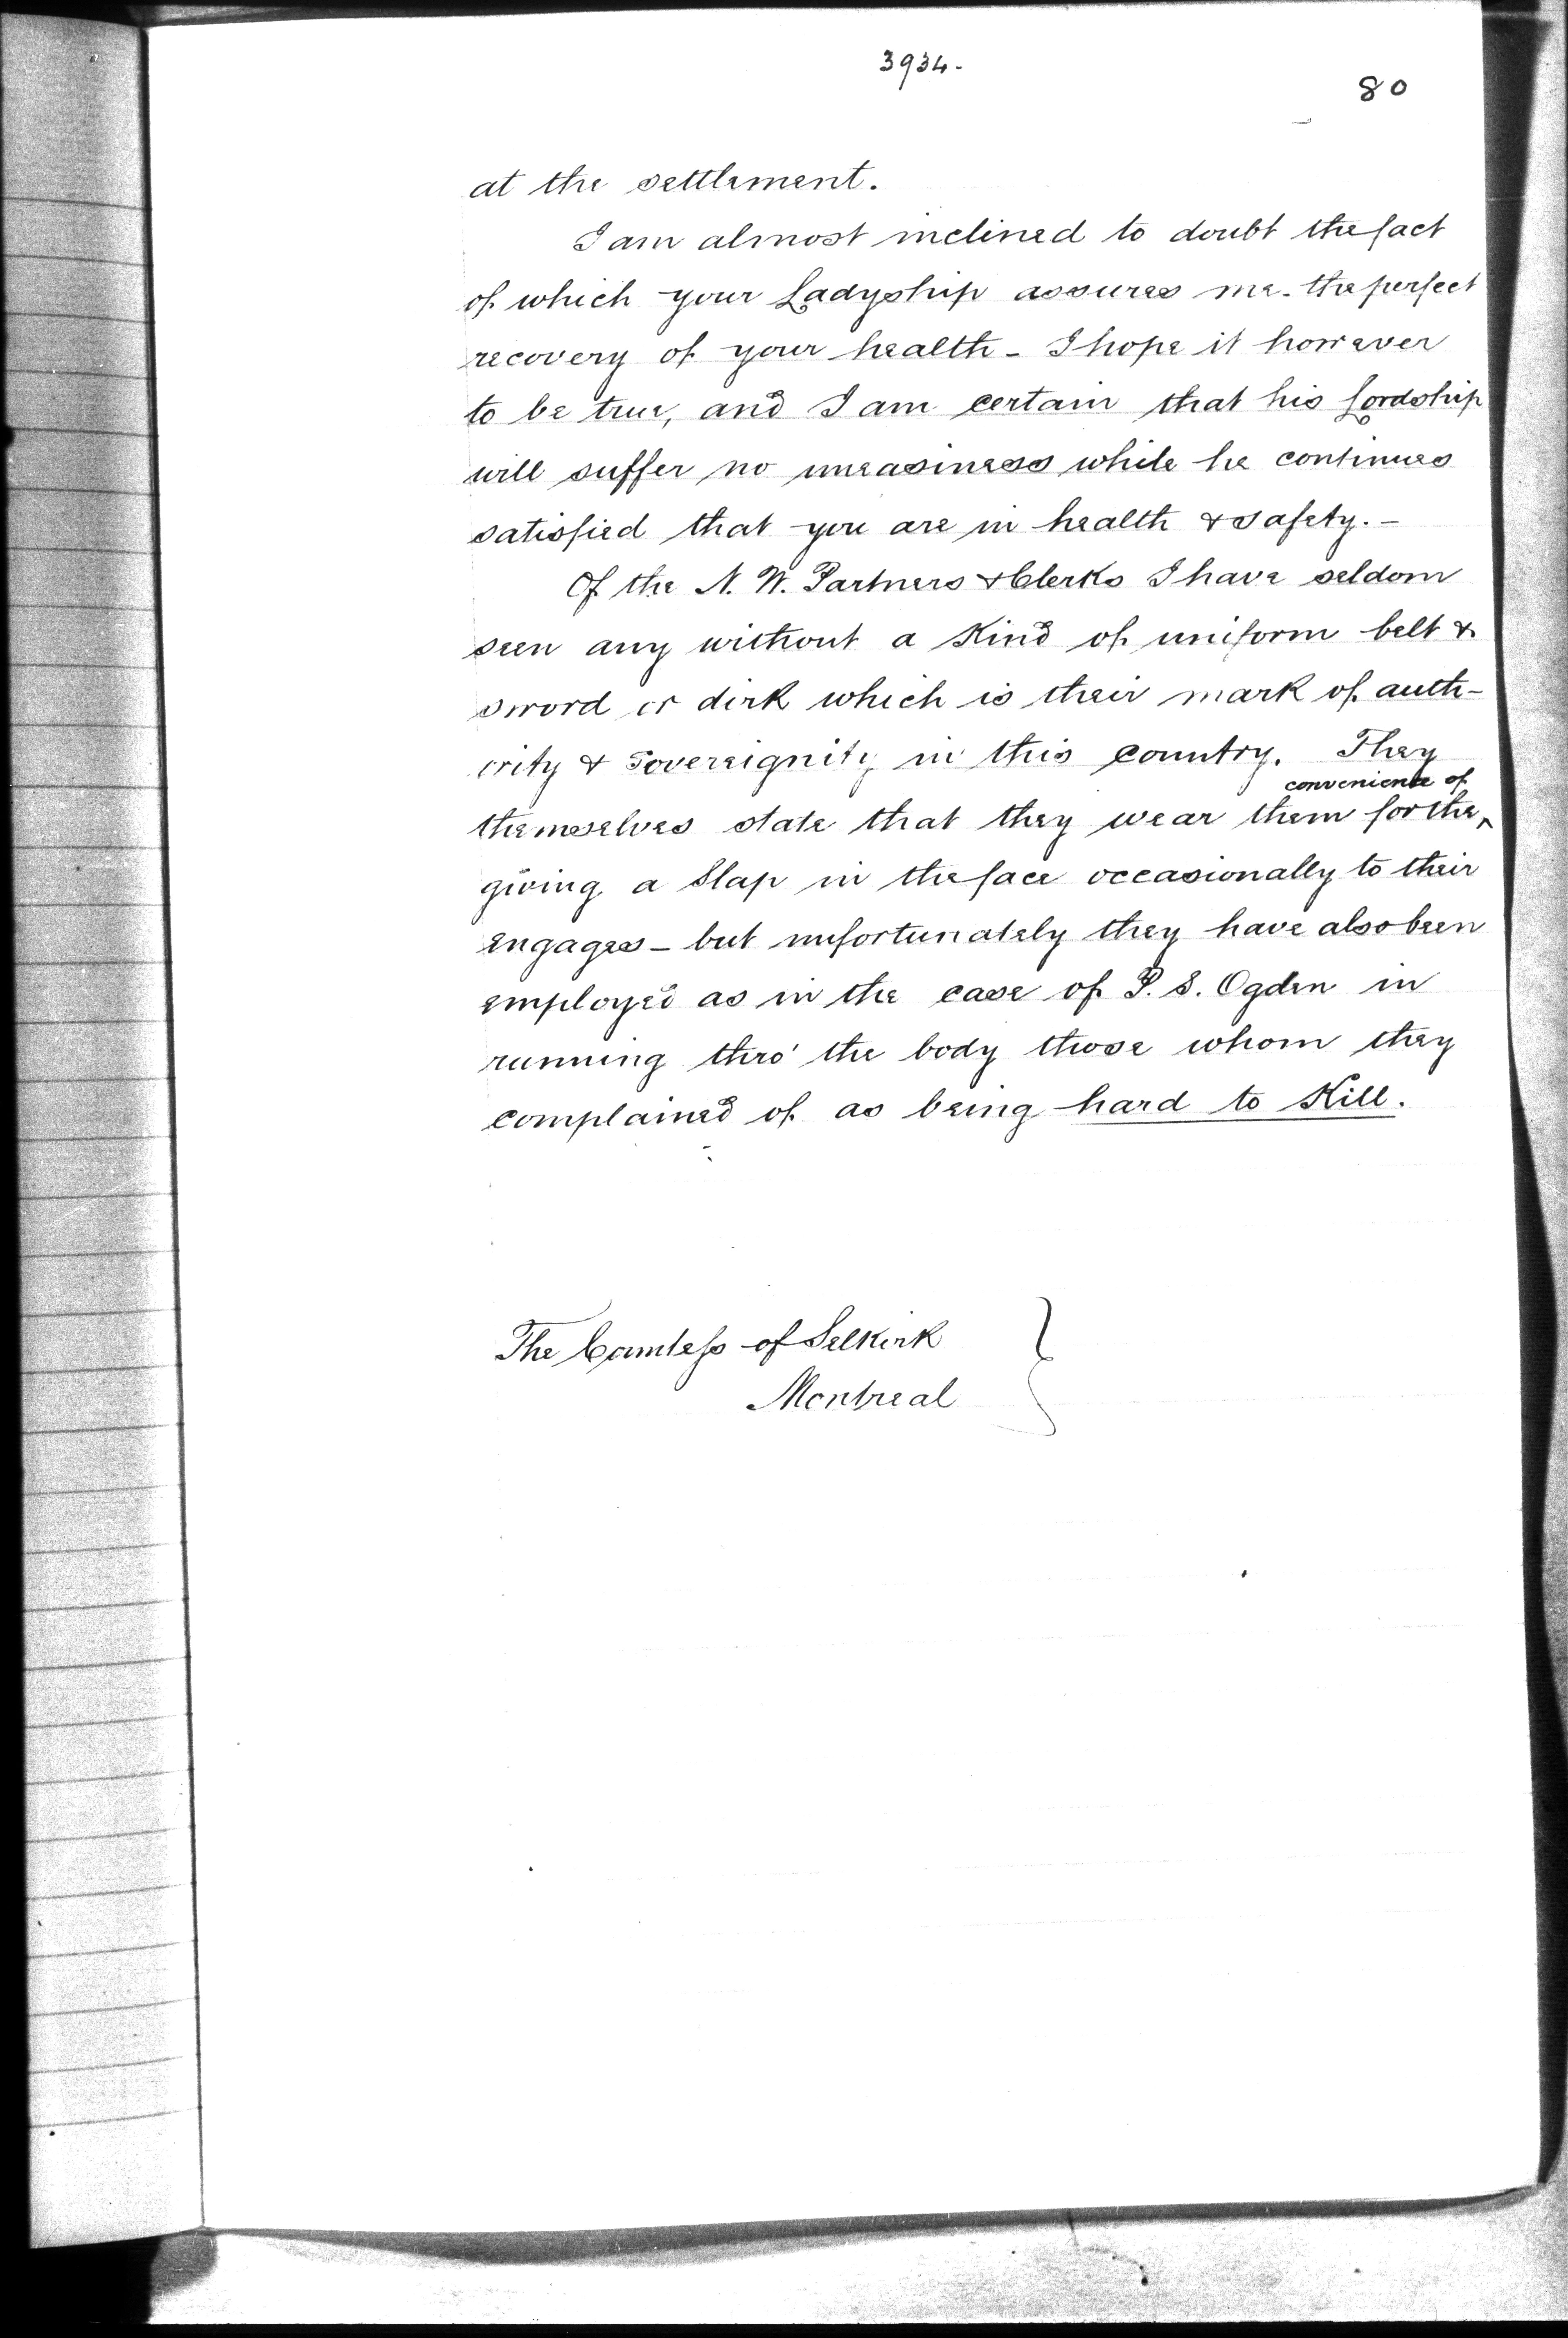 3934.
80
at the settlement.
I am almost inclined to doubt the fact
of which your Ladyship assures me - the perfect
recovery of your health - I hope it however
to be true, and I am certain that his Lordship
will suffer no uneasiness while he continues
satisfied that you are in health & safety. -
Of the N. W. Partners & Clerks I have seldom
seen any without a Kind of uniform belt &
sword or dirk which is their mark of auth-
ority & Sovereignity in this country. They
convenience of
themselves state that they wear them for the ^
giving a Slap in the face occasionally to their
engages - but unfortunately they have also been
employed as in the case of P. S. Ogden in
running thro' the body those whom they
complained of as being hard to Kill.
The Countess of Selkirk }
Montreal